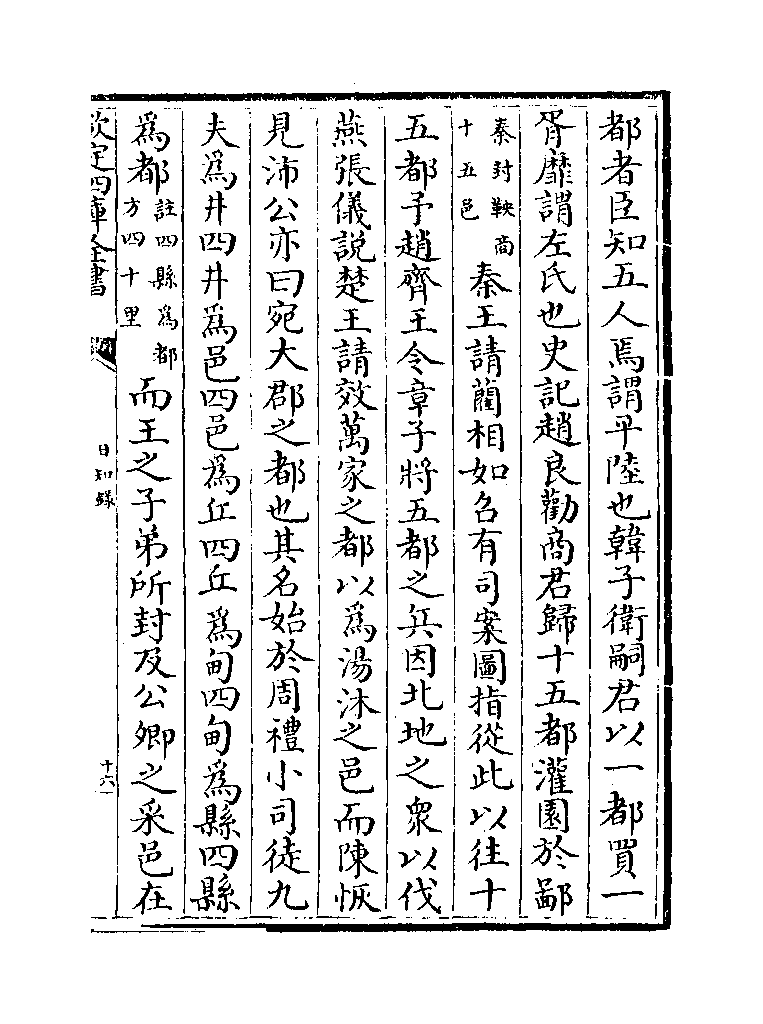 都者臣知五人焉謂平陸也韓子衛嗣君以一都買一
胥靡謂左氏也史記趙良勸商君歸十五都灌園於鄙
秦封鞅商十五邑秦王請藺相如召有司案圖指從此以往十
五都予趙齊王令章子將五都之兵因北地之衆以伐
燕張儀說楚王請效萬家之都以爲湯沐之邑而陳恢
見沛公亦曰宛大郡之都也其名始於周禮小司徒九
夫爲井四井爲邑四邑爲丘四丘爲甸四甸爲縣四縣
爲都註四縣爲都方四十里而王之子弟所封及公卿之采邑在
欽定四庫全書
日知錄
十六